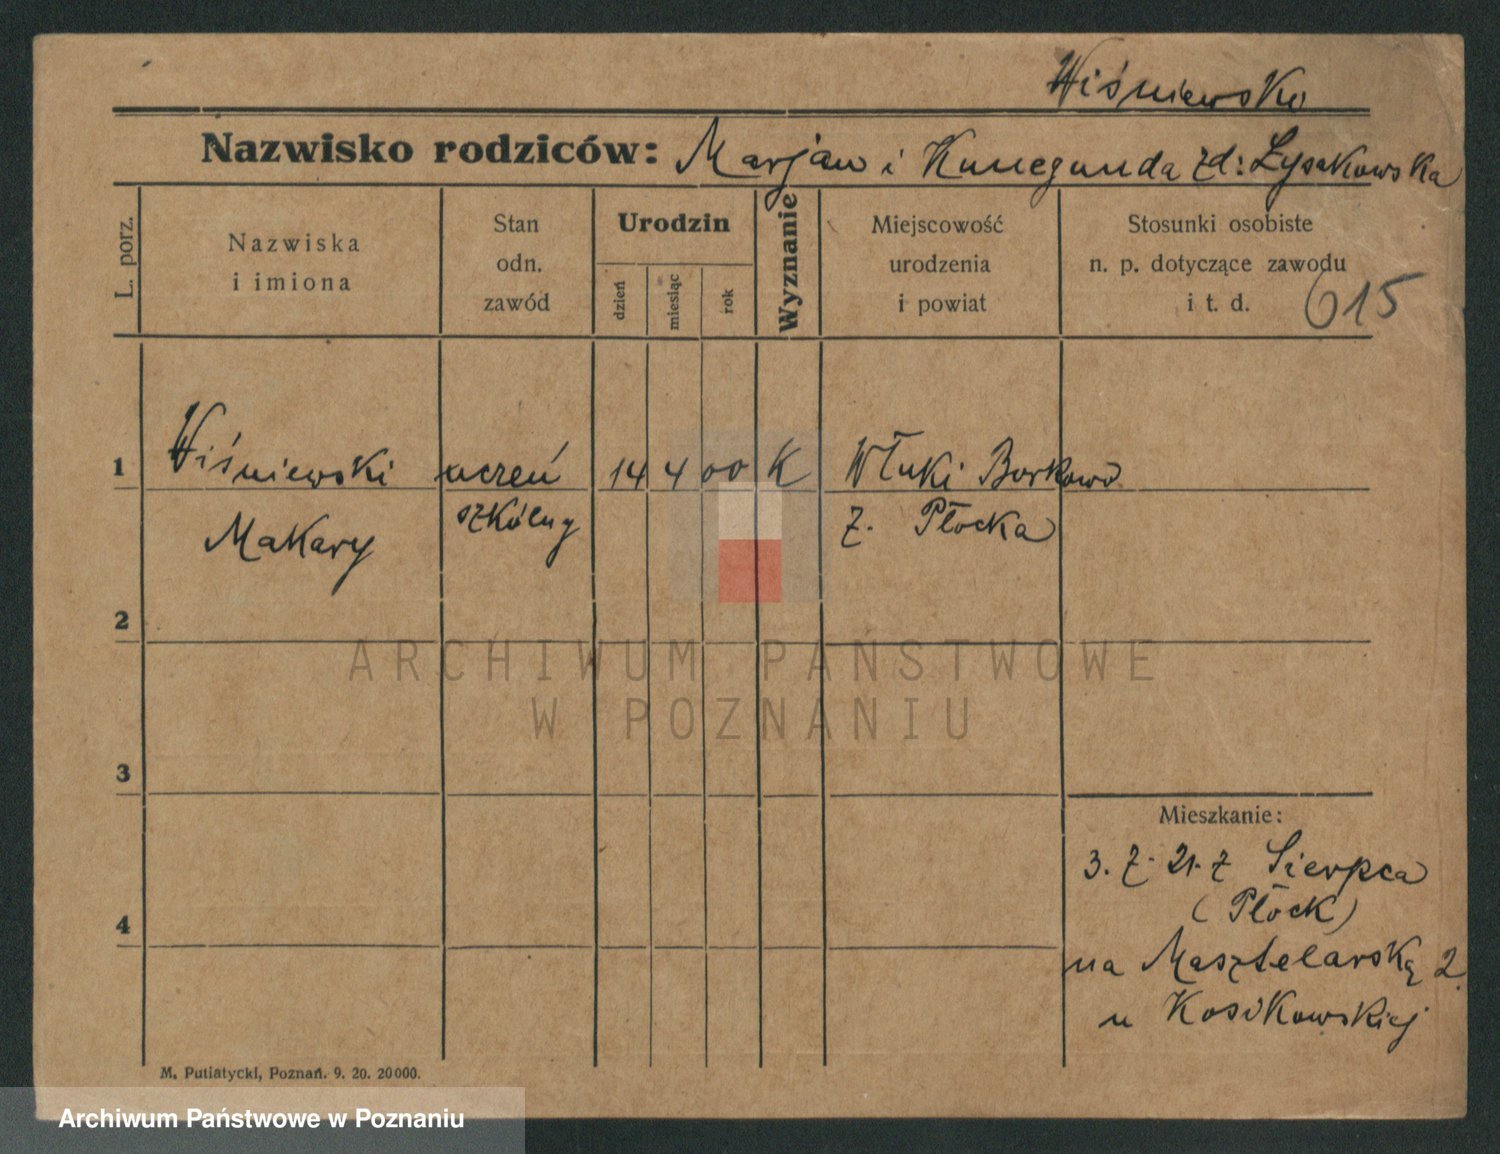 Wiśniewski
Nazwisko rodziców: Marjan i Kunegunda zd: Łysakowska
L. porz.
Nazwiska
i imiona
Stan
odn.
zawód
Urodzin
dzień
miesiąc
rok
Wyznanie
Miejscowość
urodzenia
i powiat
Stosunki osobiste
n. p. dotyczące zawodu
i t. d.
615
1 Wiśniewski uczeń 14 4 00 K Włuki Borkowo
Makary szkólny z. Płocka
2
3
4
Mieszkanie:
3. Z. 21. z Sierpca
(Płock)
na Masztelarską 2.
u Kosikowskiej
M. Putiatycki, Poznań. 9. 20. 20000.
ARCHIWUM PAŃSTWOWE
W POZNANIU
Archiwum Państwowe w Poznaniu